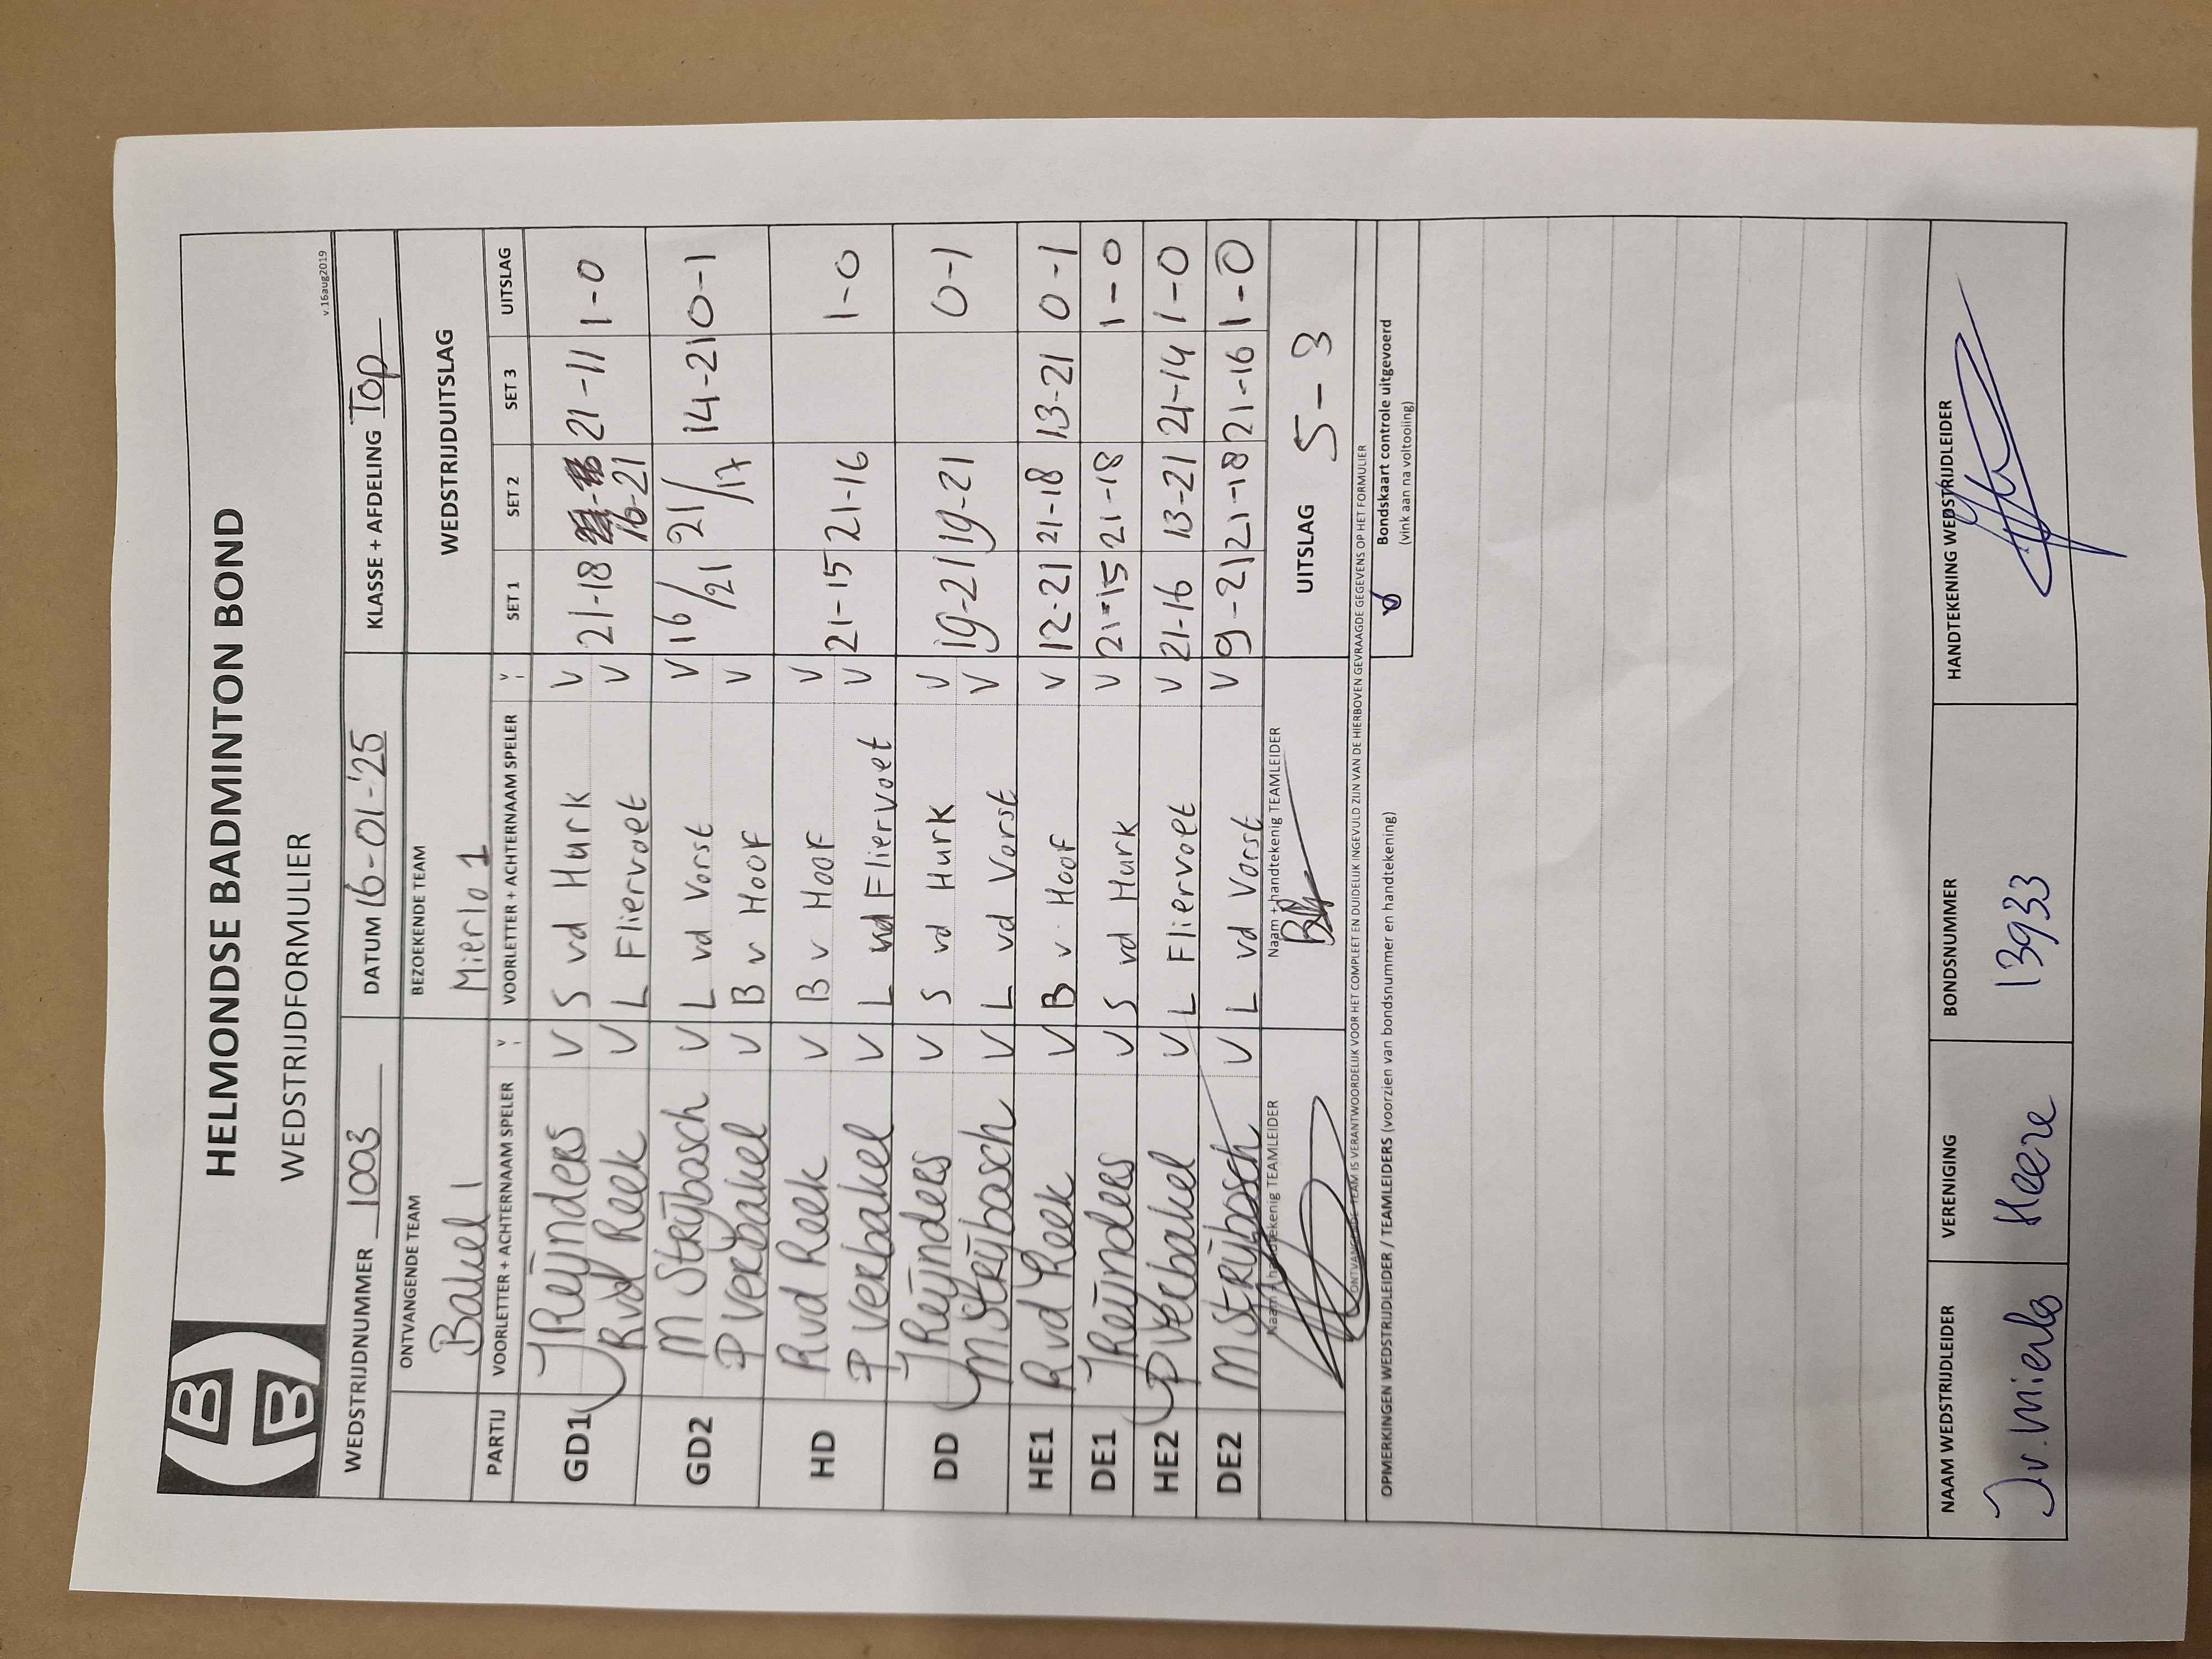 HELMONDSE BADMINTON BOND
WEDSTRIJDFORMULIER
v.16aug2019
WEDSTRIJDNUMMER 1003 DATUM 16-01-'25 KLASSE + AFDELING Top
ONTVANGENDE TEAM BEZOEKENDE TEAM WEDSTRIJDUITSLAG
Bakel 1 Mierlo 1
PARTIJ VOORLETTER + ACHTERNAAM SPELER V VOORLETTER + ACHTERNAAM SPELER V SET 1 SET 2 SET 3 UITSLAG
GD1 J Reijnders V S vd Hurk V 21-18 16-21 21-11 1-0
R vd Reek V L Fliervoet V
GD2 M Strijbosch V L vd Vorst V 16/21 21/17 14-21 0-1
P Verbakel V B v Hoof V
HD R vd Reek V B v Hoof V 21-15 21-16 1-0
P Verbakel V L Fliervoet V
DD J Reijnders V S vd Hurk V 19-21 19-21 0-1
M Strijbosch V L vd Vorst V
HE1 R vd Reek V B v Hoof V 12-21 21-18 13-21 0-1
DE1 J Reijnders V S vd Hurk V 21-15 21-18 1-0
HE2 P Verbakel V L Fliervoet V 21-16 13-21 21-14 1-0
DE2 M Strijbosch V L vd Vorst V 9-21 21-18 21-16 1-0
Naam + handtekenig TEAMLEIDER Naam + handtekenig TEAMLEIDER UITSLAG 5-3
ONTVANGENDE TEAM IS VERANTWOORDELIJK VOOR HET COMPLEET EN DUIDELIJK INGEVULD ZIJN VAN DE HIERBOVEN GEVRAAGDE GEGEVENS OP HET FORMULIER
OPMERKINGEN WEDSTRIJDLEIDER / TEAMLEIDERS (voorzien van bondsnummer en handtekening)
Bondskaart controle uitgevoerd
(vink aan na voltooling)
NAAM WEDSTRIJDLEIDER VERENIGING BONDSNUMMER HANDTEKENING WEDSTRIJDLEIDER
J v. Mierlo Heeze 13933